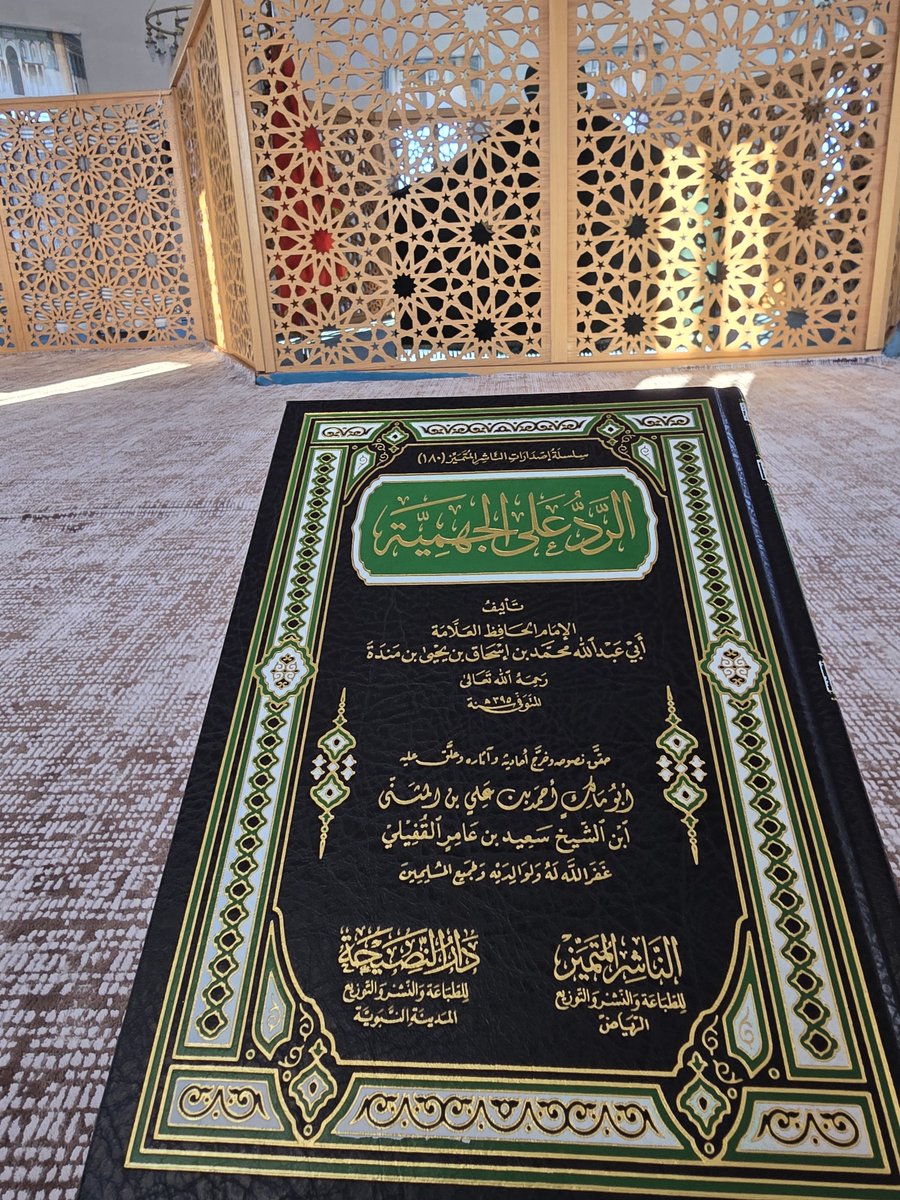 سلسلة إصدارات الناشر المتميز (١٨٠)
الرَّدُّ عَلَى الجَهْمِيَّة
تَأليفُ
الإمَام الحَافِظ العَلَّامَة
أَبِي عَبْدِ ٱللَّه مُحَمَّد بن إِسْحَاق بن يَحْيَى بن مَنْدَهْ
رَحِمَهُ ٱللَّه تَعَالَى
المتوفى سنة ٣٩٥هـ
حقق نصوصه وخرج أحاديثه وآثاره وعلق عليه
أبو مالك أحمد بن علي بن المثنى
ابن الشيخ سعيد بن عامر القفيلي
غفر الله له ولوالديه ولجميع المسلمين
الناشر المتميز
للطباعة والنشر والتوزيع
الرياض
دار النصيحة
للطباعة والنشر والتوزيع
المدينة النبوية